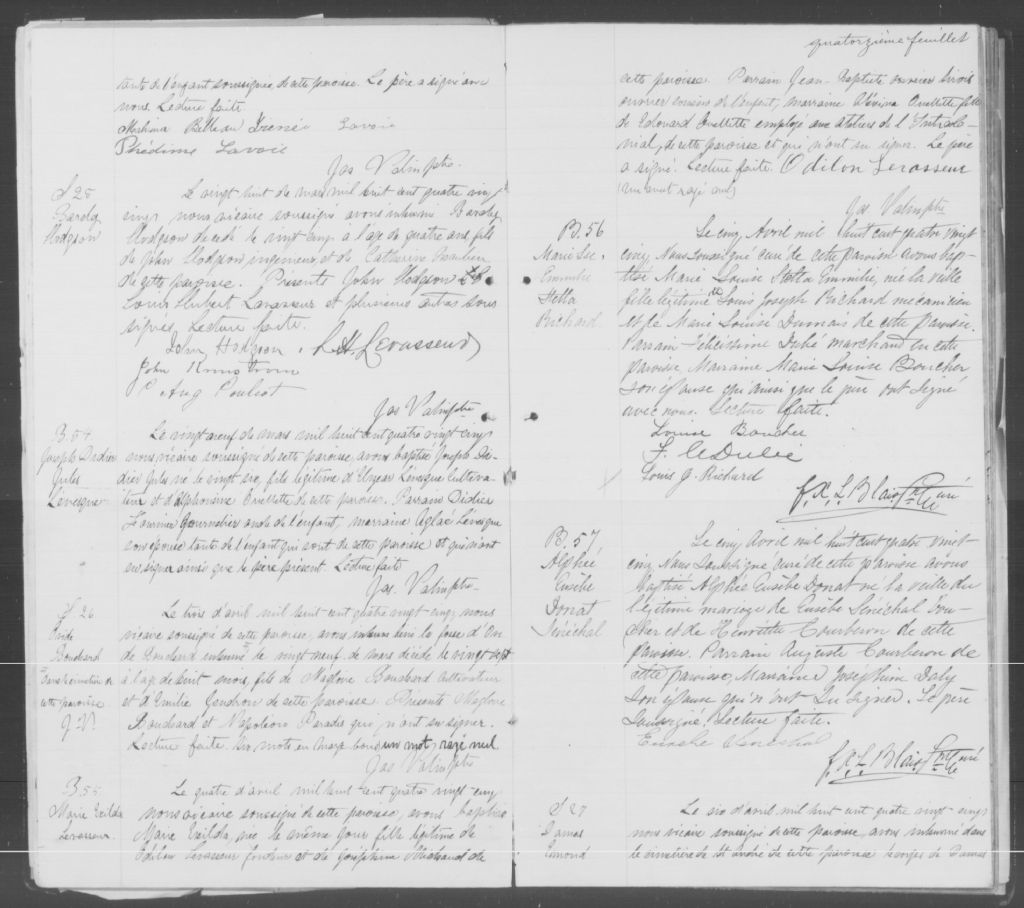 tante de l'enfant soussignée de cette paroisse. Le père a signé avec
nous. Lecture faite
Belleau Irénée Lavoie
Phédime Lavoie
Jos Valin ptre
S 25
Hodgson
Le vingt huit de mars mil huit cent quatre vingt
cinq nous vicaire soussigné avons inhumé
Hodgson décédé le vingt cinq à l'age de quatre ans, fils
de John Hodgson ingenieur, et de Catherine Beaulieu
de cette paroisse. Présents John Hodgson
Louis Hubert Levasseur et plusieurs autres sous
signés. Lecture faite.
John Hodgson L H Levasseur
John
P Aug Pouliot
Jos Valin ptre
B. 54
Joseph Didier
Jules
Levesque
Le vingt neuf de mars mil huit cent quatre vingt cinq
nous vicaire soussigné de cette paroisse, avons baptisé Joseph Di-
dier Jules né le vingt six, fils légitime d'Elzear Lévesque cultiva-
teur et d'Alphonsine Ouellette de cette paroisse. Parrain Didier
Fournier journalier oncle de l'enfant, marraine Aglaé Lévesque
son épouse tante de l'enfant qui sont de cette paroisse et qui n'ont
su signer ainsi que le père présent. Lecture faite
Jos. Valin ptre
S. 26
Ovide
Bouchard
cette paroisse
J. V.
Le trois d'avril mil huit cent quatre vingt cinq nous
vicaire soussigné de cette paroisse, avons inhumé dans la fosse d'Ovi-
de Bouchard inhumé le vingt neuf de mars décédé le vingt sept
à l'age de huit mois, fils de Magloire Bouchard cultivateur
et d'Emilie Gendron de cette paroisse. Présents Magloire
Bouchard et Napoléon Paradis qui n'ont su signer.
Lecture faite. Six mots en marge bons un mot rayé nul
Jos Valin ptre
B. 55
Marie Exilda
Levasseur
Le quatre d'avril mil huit cent quatre vingt cinq
nous vicaire soussigné de cette paroisse, avons baptisé
Marie Exilda, née le même jour fille légitime de
Odilon Levasseur fondeur et de Joséphine Michaud de
quatorzième feuillet
cette paroisse. Parrain Jean-Baptiste ouvrier Sirois
ouvrier cousin de l'enfant, marraine Elévina Ouellette fille
de Edouard Ouellette employé aux ateliers de l'Intercolo-
nial, de cette paroisse et qui n'ont su signer. Le père
a signé. Lecture faite. Odilon Levasseur
(un mot rayé nul)
Jos. Valin ptre
B. 56
Marie Lse
Emmilie
Stella
Richard
Le cinq Avril mil huit cent quatre vingt
cinq Nous soussigné curé de cette paroisse avons bap-
tisé Marie Louise Stella Emmilie, née la veille
fille légitime de Louis Joseph Richard mécanicien
et de Marie Louise Dumais de cette paroisse.
Parrain Félicissime Dubé marchand en cette
paroisse, Marraine Marie Louise Boucher
son épouse qui ainsi que le père ont signé
avec nous. Lecture faite.
Louise Boucher
Louis J. Richard
F. X. L. Blais Ptre Curé
B. 57
Alphée
Eusèbe
Donat
Sénéchal
Le cinq Avril mil huit cent quatre vingt-
cinq Nous soussigné curé de cette paroisse avons
baptisé Alphée Eusèbe Donat né la veille du
légitime mariage de Eusèbe Sénéchal bou-
cher et de Henriette Courberon de cette
paroisse. Parrain Auguste Courberon de
cette paroisse, Marraine Joséphine Daly
son épouse qui n'ont su signer. Le père
soussigné. Lecture faite.
Eusèbe Sénéchal
F. X. L. Blais Ptre Curé
S 27
Damas
Emond
Le six d'avril mil huit cent quatre vingt-cinq
nous vicaire soussigné de cette paroisse, avons inhumé dans
le cimetière de St André de cette paroisse le corps de Damas